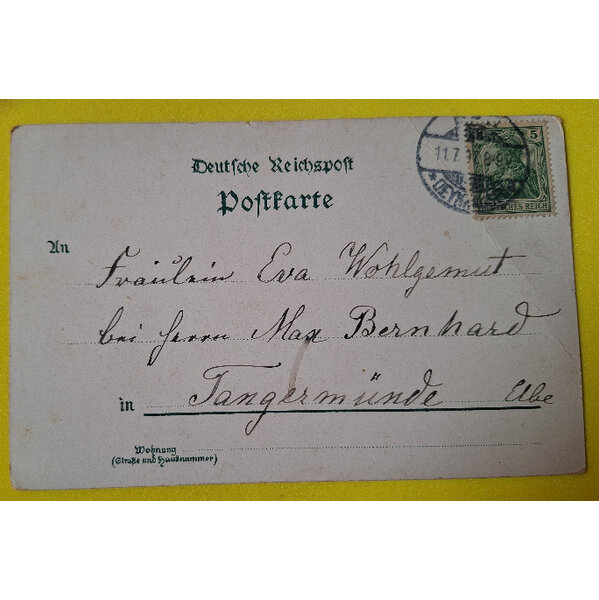 Deutsche Reichspost
Postkarte
5
11.7.
DEUTSCHES REICH
An
Fräulein Eva Wohlgemut
bei Herrn Max Bernhard
in Tangermünde Elbe
Wohnung
(Straße und Hausnummer)